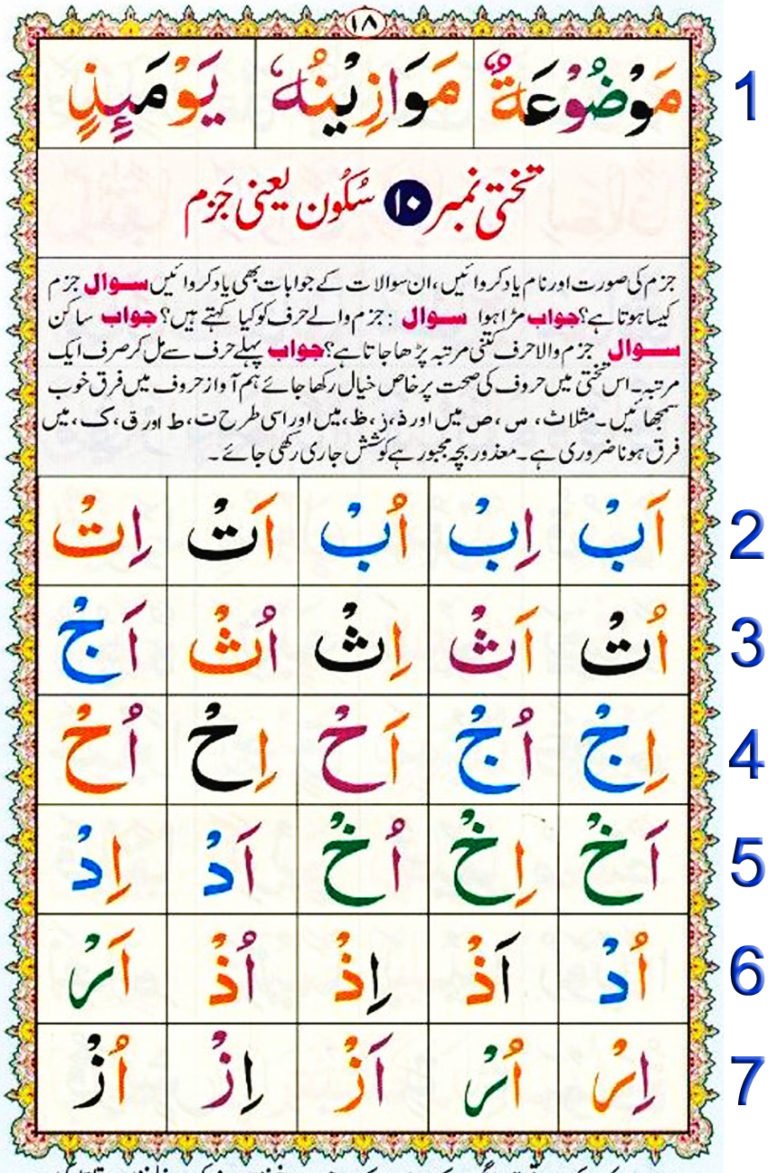 ١٨
مَوْضُوْعَةٌ مَوَازِيْنُهٗ يَوْمَئِذٍ 1
تختی نمبر ١٠ سُکُون یعنی جَزم
جزم کی صورت اور نام یاد کروائیں، ان سوالات کے جوابات بھی یاد کروائیں سوال جزم
کیسا ہوتا ہے؟ جواب مڑا ہوا سوال : جزم والے حرف کو کیا کہتے ہیں؟ جواب ساکن
سوال جزم والا حرف کتنی مرتبہ پڑھا جاتا ہے؟ جواب پہلے حرف سے مل کر صرف ایک
مرتبہ۔ اس تختی میں حروف کی صحت پر خاص خیال رکھا جائے ہم آواز حروف میں فرق خوب
سمجھائیں۔ مثلا ث، س، ص میں اور ذ، ز، ظ، میں اور اسی طرح ت، ط اور ق، ک، میں
فرق ہونا ضروری ہے۔ معذور بچہ مجبور ہے کوشش جاری رکھی جائے۔
اَبْ اِبْ اُبْ اَتْ اِتْ 2
اُتْ اَثْ اِثْ اُثْ اَجْ 3
اِجْ اُجْ اَحْ اِحْ اُحْ 4
اَخْ اِخْ اُخْ اَدْ اِدْ 5
اُدْ اَذْ اِذْ اُذْ اَرْ 6
اِرْ اُرْ اَزْ اِزْ اُزْ 7